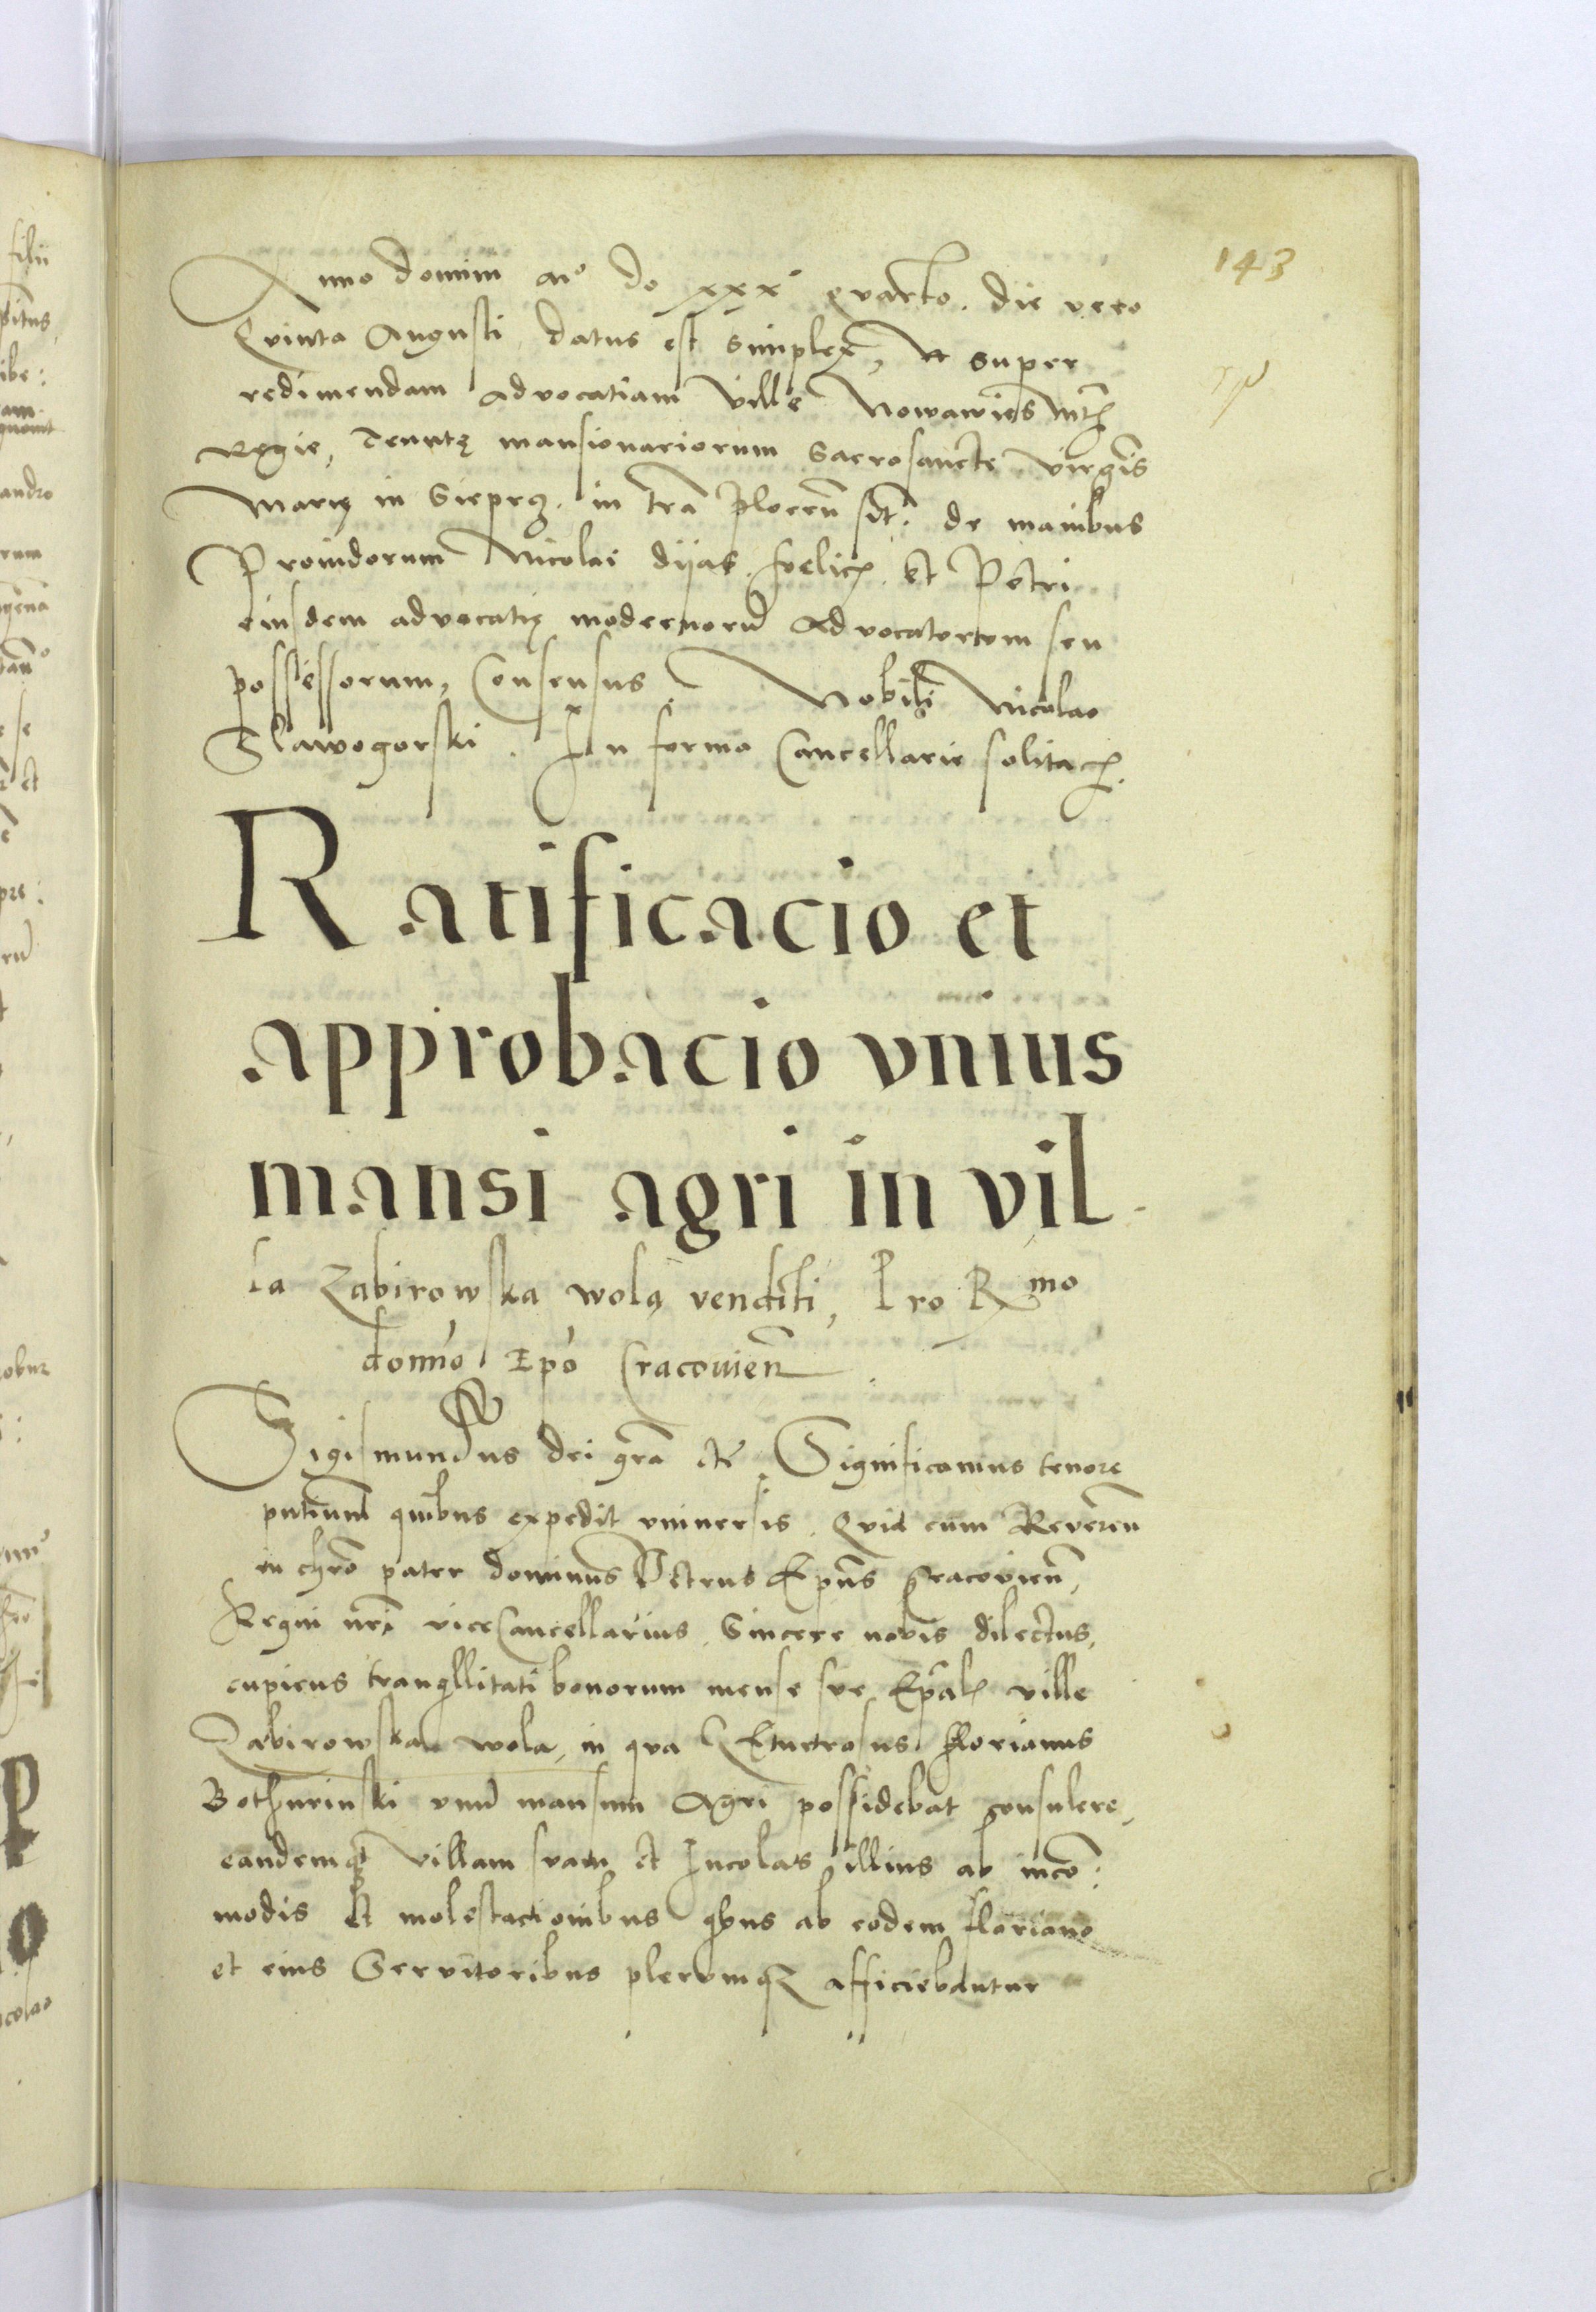 143
Anno domini mo do xxx quarto. die vero
Quinta Augusti, datus est simplex, et super
redimendam advocatiam ville Nowawies
Regie, Tenutę mansionariorum Sacrosancte virgis
Marię in Sieprcz. in tra Plocen̄ sit. de manibus
Proindorum Nicolai dyas. foelicis. et Petri
eiusdem advocatię modernorū Advocatorum seu
possessorum, Consensus. Nobili Nicolao
Slawogorski. In forma Cancellarie solita
Ratificacio et
approbacio vnius
mansi agri in vil
la Zabirowska wola venditi, Pro Rmo
domo Epo Cracouien̄.
Sigismundus dei gra etc. Significamus tenore
pntium quibus expedit vniuersis. Quia cum Reveren
in chro pater dominus Petrus Epus Cracovien̄,
Regni nri viceCancellarius. Sincere nobis dilectus,
cupiens tranqllitati bonorum mense sue Epalis ville
Zabirowska wola, in qua Florianus
Bothurinski vnū mansum Agri possidebat consulere,
eandemqz villam suam et Incolas illius ab inco:
modis et molestacionibus qbus ab eodem floriano
et eius Servitoribus plerumqz afficiebantur